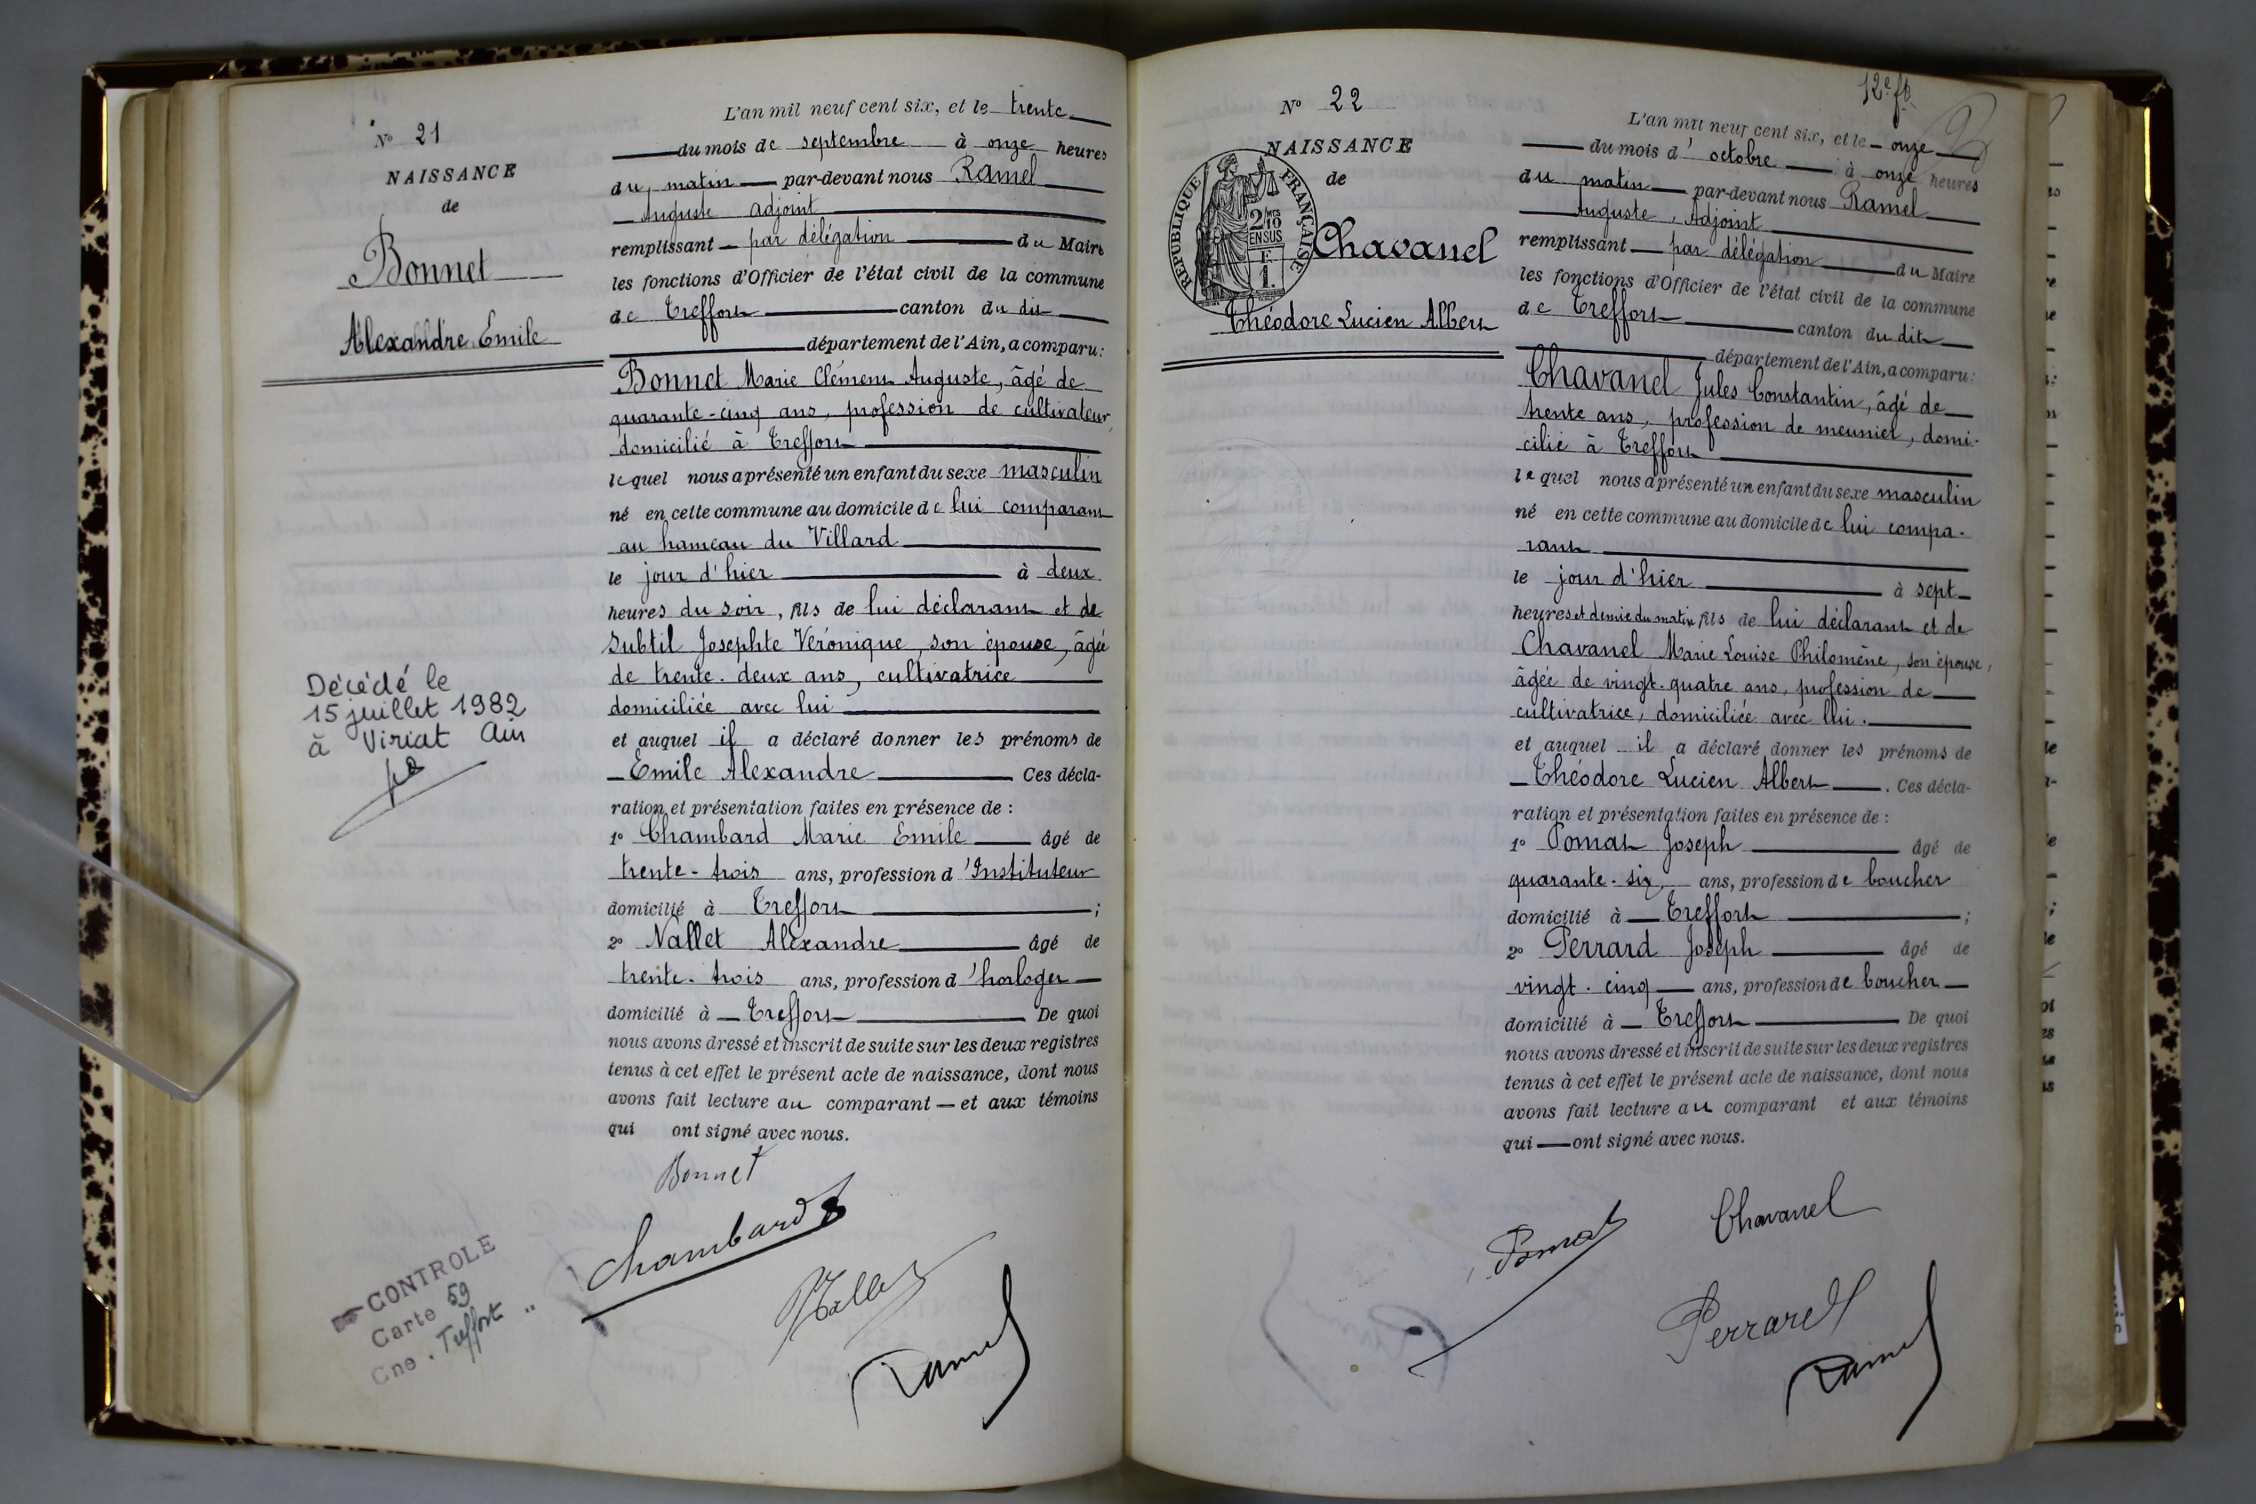 N° 21
NAISSANCE
de
Bonnet
Alexandre Emile
Décédé le
15 juillet 1982
à Viriat Ain
CONTROLE
Carte 59
Cne. Treffort
L'an mil neuf cent six, et le trente
du mois de septembre à onze heures
du matin par-devant nous Ramel
Auguste adjoint
remplissant par délégation du Maire
les fonctions d'Officier de l'état civil de la commune
de Treffort canton du dit
département de l'Ain, a comparu:
Bonnet Marie Clément Auguste, âgé de
quarante-cinq ans, profession de cultivateur,
domicilié à Treffort
lequel nous a présenté un enfant du sexe masculin
né en cette commune au domicile de lui comparant
au hameau du Villard
le jour d'hier à deux
heures du soir, fils de lui déclarant et de
Subtil Josephte Véronique, son épouse, âgée
de trente-deux ans, cultivatrice
domiciliée avec lui
et auquel il a déclaré donner les prénoms de
Emile Alexandre Ces décla-
ration et présentation faites en présence de :
1° Chambard Marie Emile âgé de
trente-trois ans, profession d'Instituteur
domicilié à Treffort ;
2° Nallet Alexandre âgé de
trente-trois ans, profession d'horloger
domicilié à Treffort De quoi
nous avons dressé et inscrit de suite sur les deux registres
tenus à cet effet le présent acte de naissance, dont nous
avons fait lecture au comparant et aux témoins
qui ont signé avec nous.
Bonnet
Chambard
Nallet
Ramel
12e ft
N° 22
NAISSANCE
de
RÉPUBLIQUE FRANÇAISE
2/10
EN SUS
F.
1.
Chavanel
Théodore Lucien Albert
L'an mil neuf cent six, et le onze
du mois d'octobre à onze heures
du matin par-devant nous Ramel
Auguste, Adjoint
remplissant par délégation du Maire
les fonctions d'Officier de l'état civil de la commune
de Treffort canton du dit
département de l'Ain, a comparu:
Chavanel Jules Constantin, âgé de
trente ans, profession de meunier, domi-
cilié à Treffort
lequel nous a présenté un enfant du sexe masculin
né en cette commune au domicile de lui compa-
rant
le jour d'hier à sept
heures et demie du matin fils de lui déclarant et de
Chavanel Marie Louise Philomène, son épouse,
âgée de vingt-quatre ans, profession de
cultivatrice, domiciliée avec lui.
et auquel il a déclaré donner les prénoms de
Théodore Lucien Albert. Ces décla-
ration et présentation faites en présence de :
1° Pomat Joseph âgé de
quarante-six, ans, profession de boucher
domicilié à Treffort ;
2° Perrard Joseph âgé de
vingt-cinq ans, profession de boucher
domicilié à Treffort De quoi
nous avons dressé et inscrit de suite sur les deux registres
tenus à cet effet le présent acte de naissance, dont nous
avons fait lecture au comparant et aux témoins
qui ont signé avec nous.
Pomat
Chavanel
Perrard
Ramel